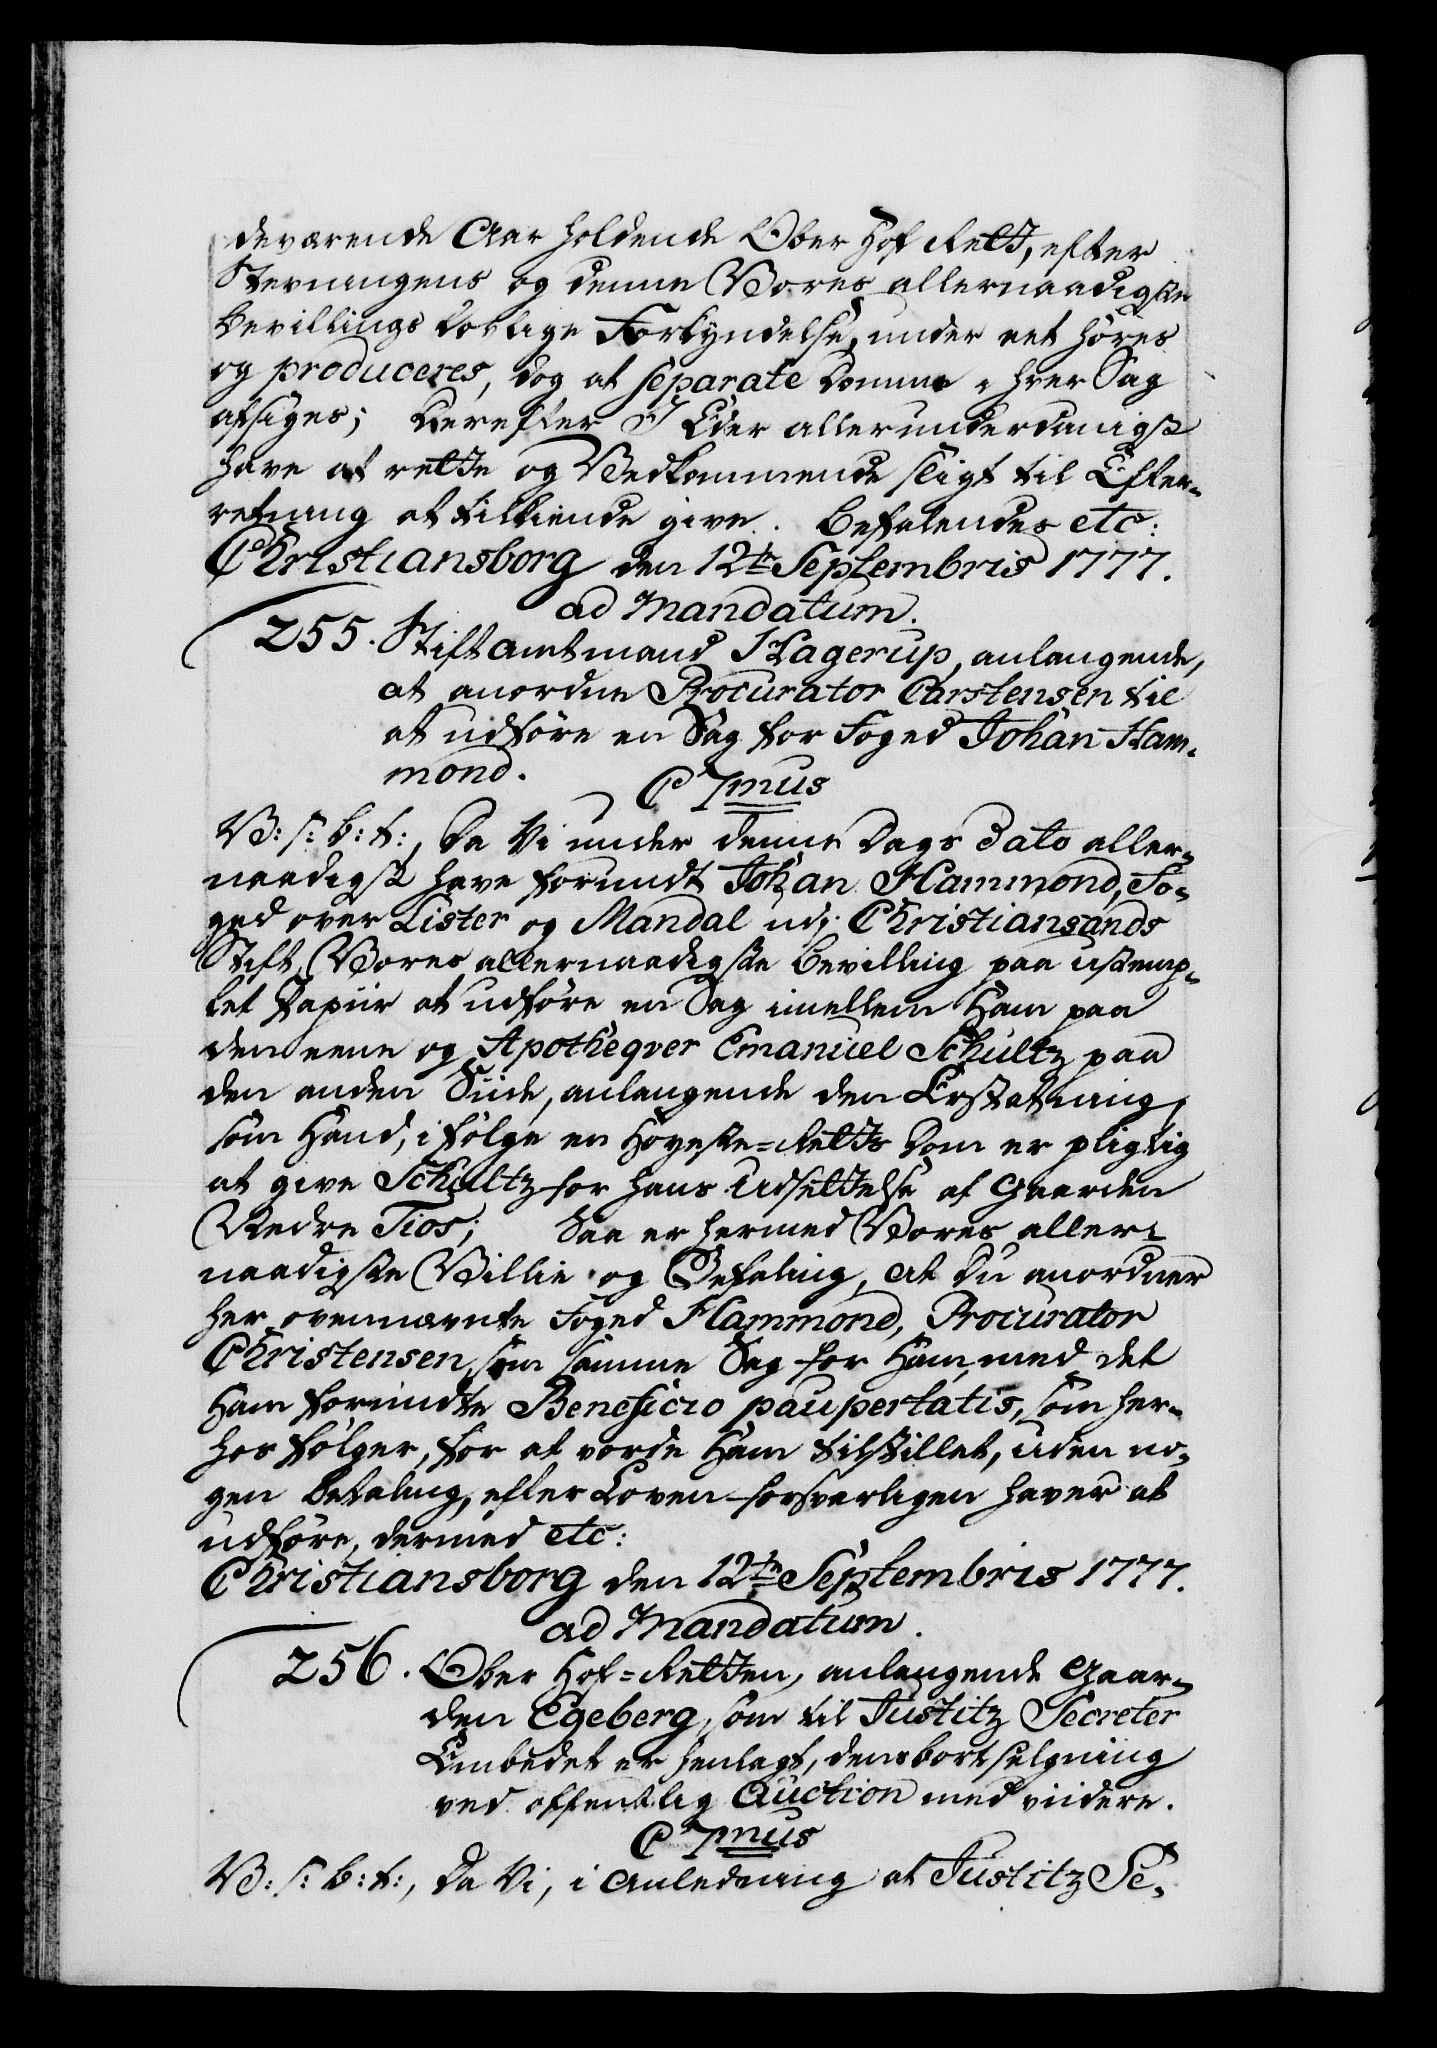 deværende Aar holdende Ober Hof Rett, efter
Stevningens og denne Vores allernaadigste
Bevillings Lovlige Forkyndelse, under eet høres
og produceres, dog at separate Domme i hver Sag
afsiges; Derefter I Eder allerunderdanigst
have at rette og Vedkommende sligt til Efter-
retning at tilkiende give. Befalendes etc:
Christiansborg den 12te Septembris 1777.
ad Mandatum.
255. Stiftamtmand Hagerup, anlangende,
at anordne Procurator Carstensen til
at udføre en Sag for Foged Johan Ham-
mond.
C 7mus
V: s: b: t:, Da Vi under denne Dags Dato aller-
naadigst have forundt Johan Hammond, Fo-
ged over Lister og Mandal udj Christiansands
Stift, Vores allernaadigste Bevilling paa ustemp-
let Papiir at udføre en Sag imellem Ham paa
den eene og Apotheqver Emanuel Schultz paa
den anden Siide, anlangende den Erstatning,
som Hand, i følge en Høyeste-Retts Dom er pligtig
at give Schultz for hans Udsettelse af Gaarden
Nedre Tios; Saa er hermed Vores aller-
naadigste Villie og Befaling, at Du anordner
her ovennævnte Foged Hammond, Procurator
Christensen, som samme Sag for Ham, med det
Ham forundte Beneficio paupertatis, som her-
hos følger, for at vorde Ham tilstillet, uden no-
gen Betaling, efter Loven forsvarligen haver at
udføre, dermed etc:
Christiansborg den 12te Septembris 1777.
ad Mandatum.
256. Ober Hof-Retten, anlangende Gaar-
den Egeberg, som til Justitz Secreter
Embedet er henlagt, dens bortselgning
ved offentlig Auction med viidere.
C 7mus
V: s: b: t:, Da Vi, i Anledning at Justitz Se-